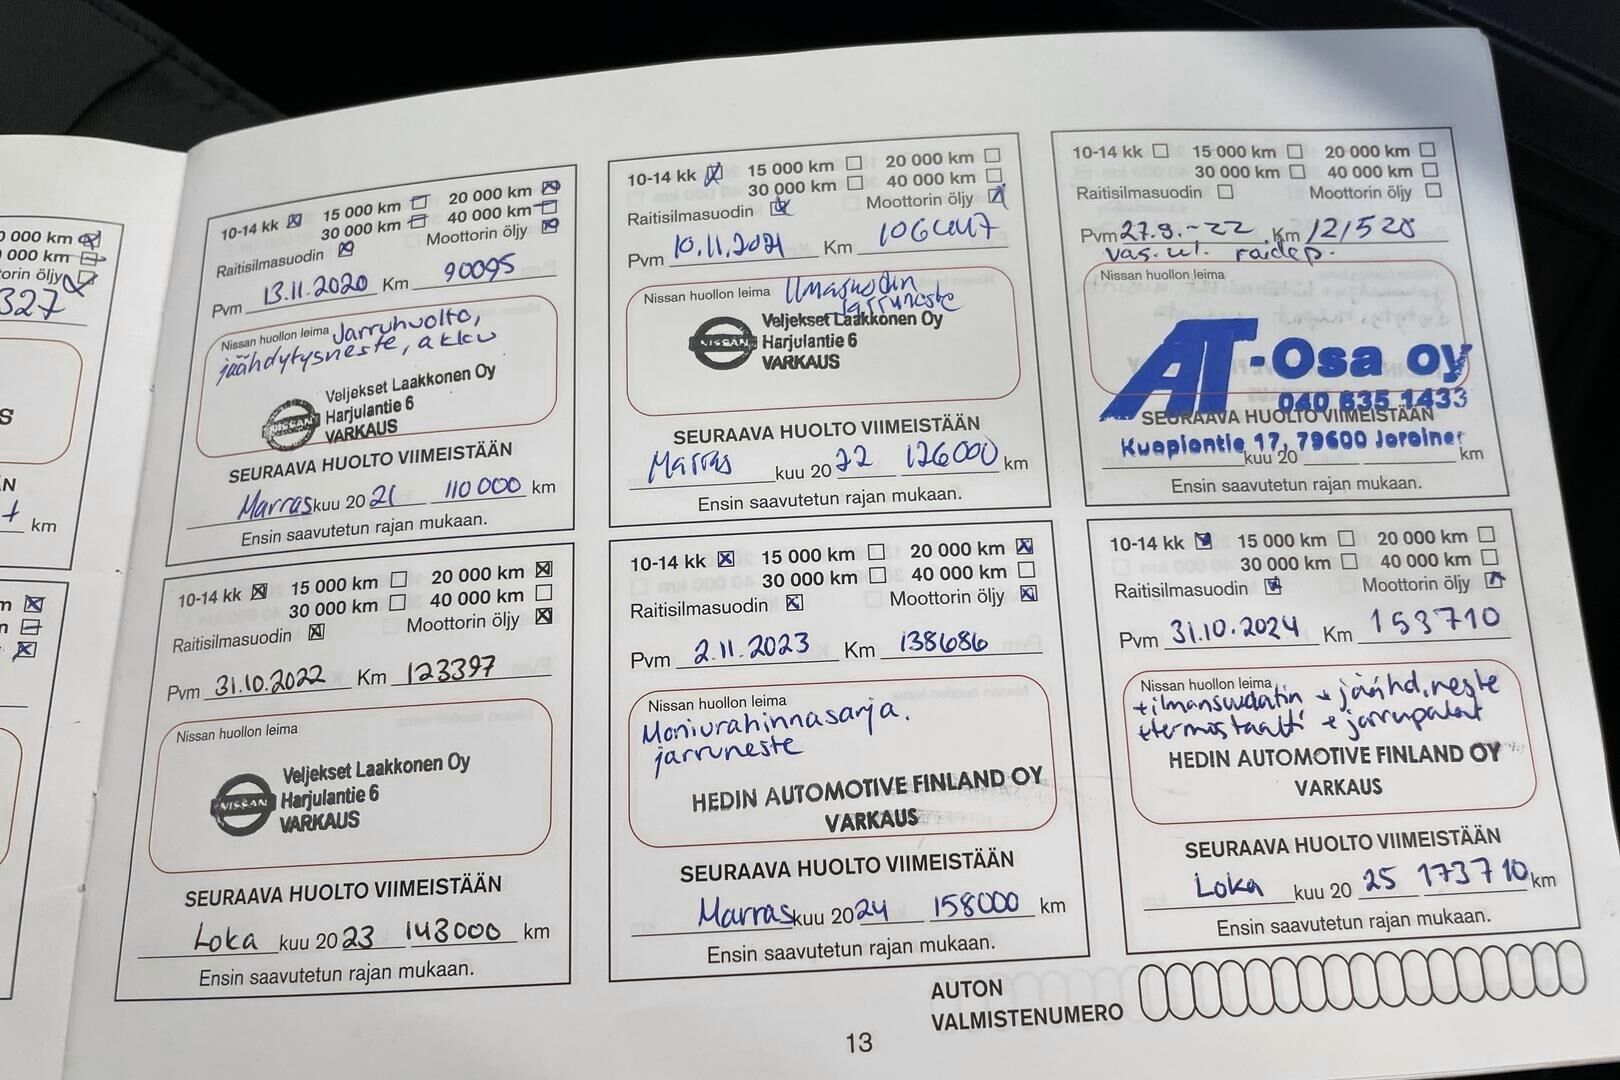 0 000 km
000 km
orin öljy
327
S
N
km
10-14 kk 15 000 km 20 000 km
30 000 km 40 000 km
Raitisilmasuodin Moottorin öljy
Pvm 13.11.2020 Km 90095
Nissan huollon leima Jarruhuolto,
jäähdytysneste, akku
Veljekset Laakkonen Oy
NISSAN Harjulantie 6
VARKAUS
SEURAAVA HUOLTO VIIMEISTÄÄN
Marras kuu 20 21 110 000 km
Ensin saavutetun rajan mukaan.
10-14 kk 15 000 km 20 000 km
30 000 km 40 000 km
Raitisilmasuodin Moottorin öljy
Pvm 10.11.2021 Km
Nissan huollon leima Ilmasuodin
jarruneste
Veljekset Laakkonen Oy
NISSAN Harjulantie 6
VARKAUS
SEURAAVA HUOLTO VIIMEISTÄÄN
Marras kuu 20 22 126000 km
Ensin saavutetun rajan mukaan.
10-14 kk 15 000 km 20 000 km
30 000 km 40 000 km
Raitisilmasuodin Moottorin öljy
Pvm 27.9.-22 Km 121528
vas. ul. raidep.
Nissan huollon leima
AT-Osa oy
040 635 1433
SEURAAVA HUOLTO VIIMEISTÄÄN
Kuopiontie 17, 79600 Joroinen
kuu 20 km
Ensin saavutetun rajan mukaan.
10-14 kk 15 000 km 20 000 km
30 000 km 40 000 km
Raitisilmasuodin Moottorin öljy
Pvm 31.10.2022 Km 123397
Nissan huollon leima
Veljekset Laakkonen Oy
NISSAN Harjulantie 6
VARKAUS
SEURAAVA HUOLTO VIIMEISTÄÄN
Loka kuu 20 23 143000 km
Ensin saavutetun rajan mukaan.
10-14 kk 15 000 km 20 000 km
30 000 km 40 000 km
Raitisilmasuodin Moottorin öljy
Pvm 2.11.2023 Km 138686
Nissan huollon leima
Moniurahinnasarja.
jarruneste
HEDIN AUTOMOTIVE FINLAND OY
VARKAUS
SEURAAVA HUOLTO VIIMEISTÄÄN
Marras kuu 20 24 158000 km
Ensin saavutetun rajan mukaan.
10-14 kk 15 000 km 20 000 km
30 000 km 40 000 km
Raitisilmasuodin Moottorin öljy
Pvm 31.10.2024 Km 153710
Nissan huollon leima
+ilmansuodatin + jäähd.neste
+termostaatti + jarrupalat
HEDIN AUTOMOTIVE FINLAND OY
VARKAUS
SEURAAVA HUOLTO VIIMEISTÄÄN
Loka kuu 20 25 173710 km
Ensin saavutetun rajan mukaan.
AUTON
VALMISTENUMERO
13